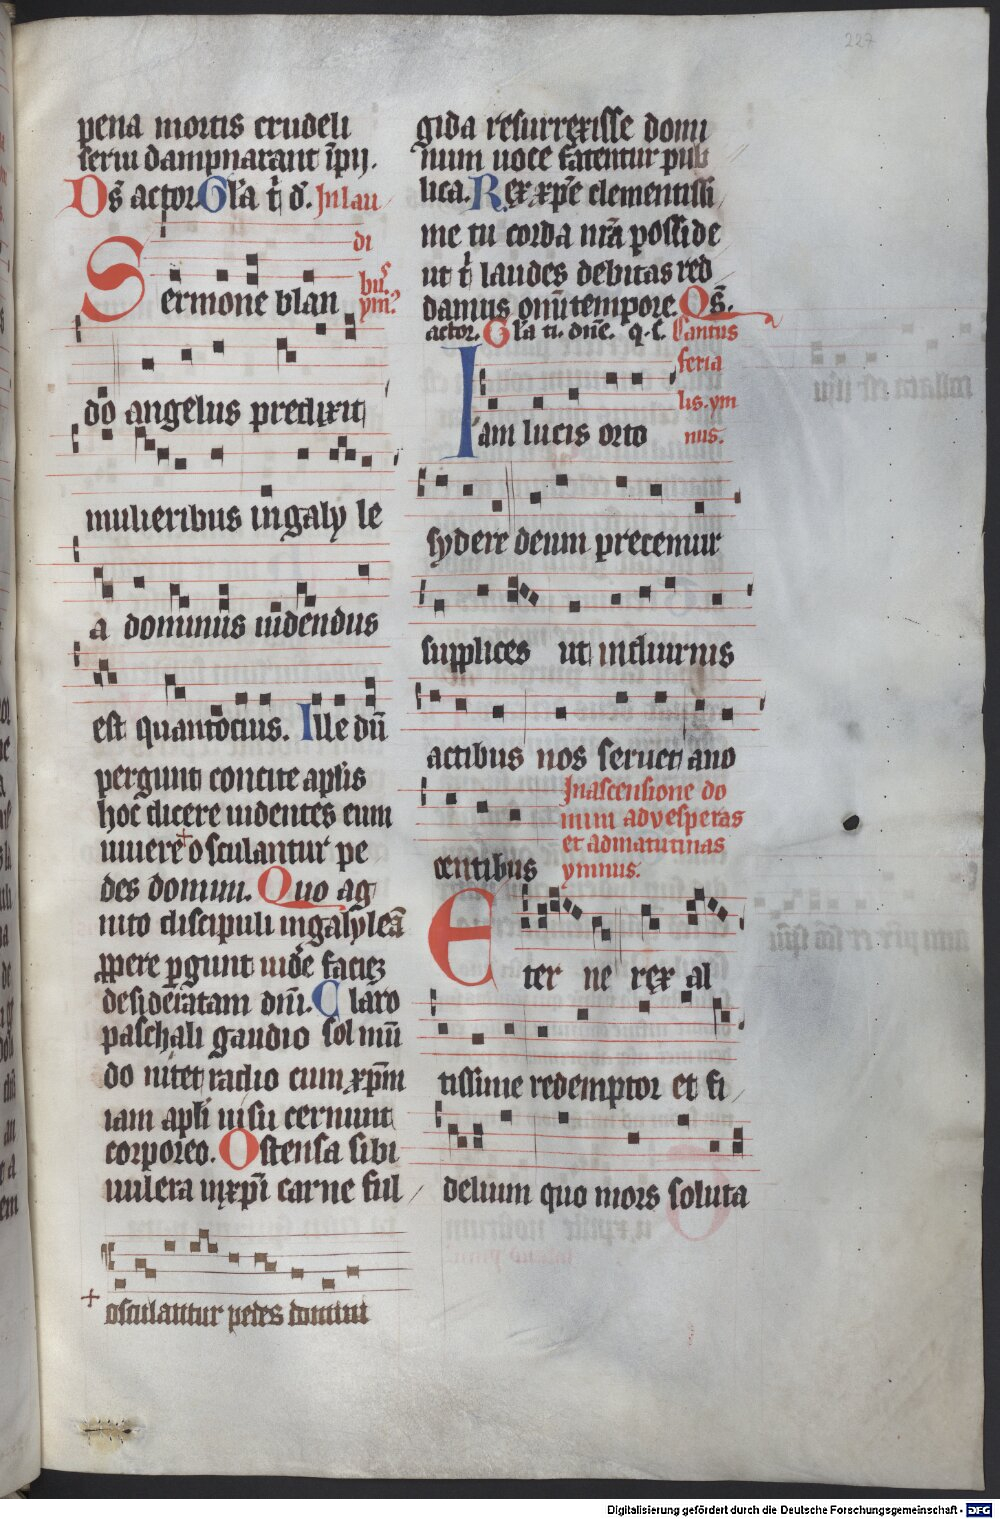 227
pena mortis crudeli
seruı dampnarant īpij.
Qs̄ actor. Gl̄a t̄ d̄. In lau
di
bus
ymꝰ
Sermone blan
do angelus predixit
mulieribus in galy le
a dominus uidendus
est quantocius. Ille dū
pergunt concite apl̄is
hoc dicere uidentes eum
uiuere + osculantur pe
des domini. Quo ag
nito discipuli in galyleā
ꝓpere ꝑgunt uidēe faciez
desideratam dn̄i. Claro
paschali gaudio sol mū
do nitet radio cum xp̄m
iam apl̄i uisu cernunt
corporeo. Ostensa sibi
uulnera in xp̄i carne ful
+ osculantur pedes domini
gida resurrexisse domi
num uoce fatentur pub
lica. Rex xp̄e clementissi
me tu corda nr̄a posside
ut t̄ laudes debitas red
damus om̄i tempore. Qs̄.
actor. Gl̄a ti. dn̄e. q. s. Cantus
feria
lis. ym
nus.
Iam lucis orto
sydere deum precemur
supplices ut in diurnis
actibus nos seruet a no
centibus
In ascensione do
mini ad vesperas
et ad matutinas
ymnus.
Eter ne rex al
tissime redemptor et fi
delium quo mors soluta
Digitalisierung gefördert durch die Deutsche Forschungsgemeinschaft - DFG